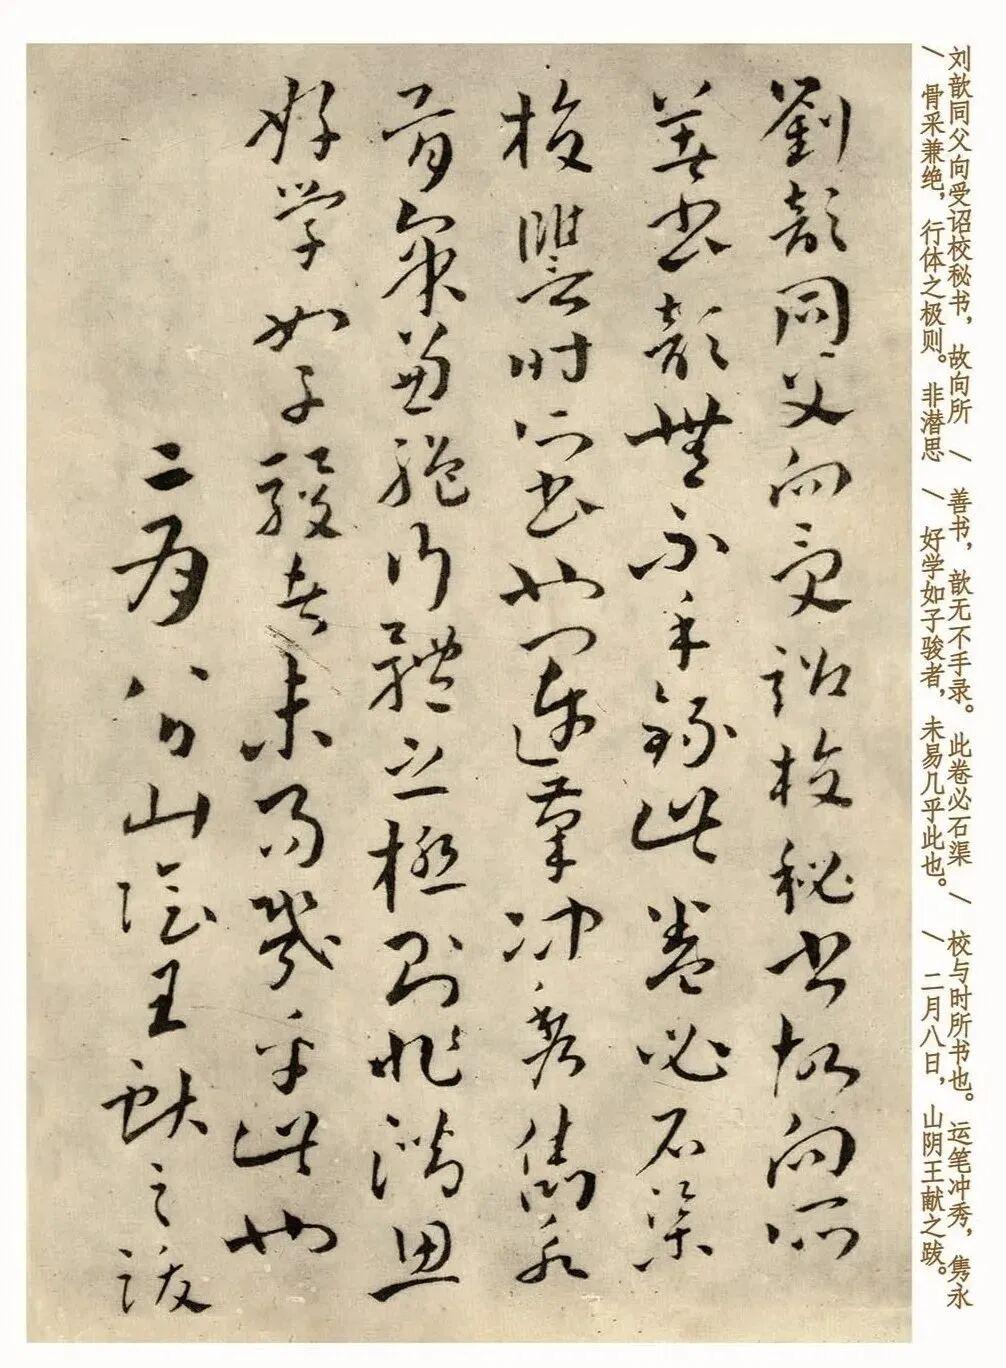 刘歆同父向受诏校秘书，故向所 / 善书，歆无不手录。此卷必石渠 / 校与时所书也。运笔冲秀，隽永
/ 骨采兼绝，行体之极则。非潜思 / 好学如子骏者，未易几乎此也。 / 二月八日，山阴王献之跋。
劉歆同父向受詔校秘書故向所
善書歆無不手錄此卷必石渠
校讐時所書也運筆冲秀雋永
骨采兼絶行體之極則非潜思
好学如子駿者未易幾乎此也
二月八日山陰王献之跋